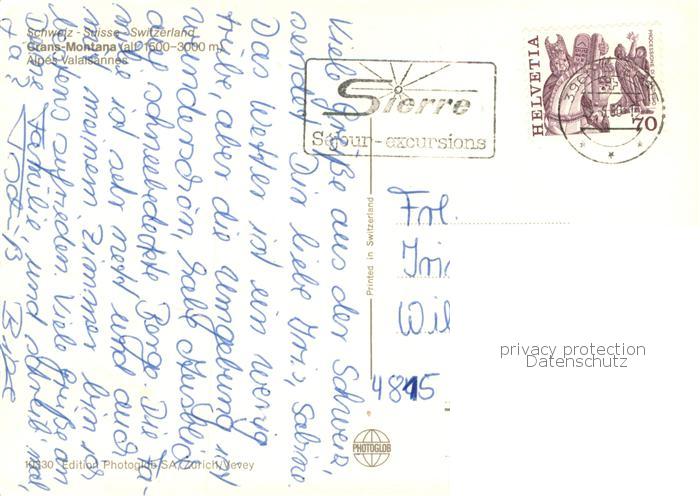 Schweiz - Suisse - Switzerland
Crans-Montana (alt. 1500-3000 m)
Alpes Valaisannes
Sierre
Séjour - excursions
HELVETIA
70
Printed in Switzerland
Viele Grüße aus der Schweiz,
sendet Dir liebe Iris, Sabine.
Das Wetter ist ein wenig
trübe aber die Umgebung ist
wunderschön, habe Ausblick
auf schneebedeckte Berge. Die Fa-
milie ist sehr nett und auch
mit meinem Zimmer bin ich
zufrieden. Viele Grüße an
Deine Familie und schreib mal,
Frl.
Iri
Wil
4815
privacy protection
Datenschutz
PHOTOGLOB
10330 Edition Photoglob SA, Zürich/Vevey